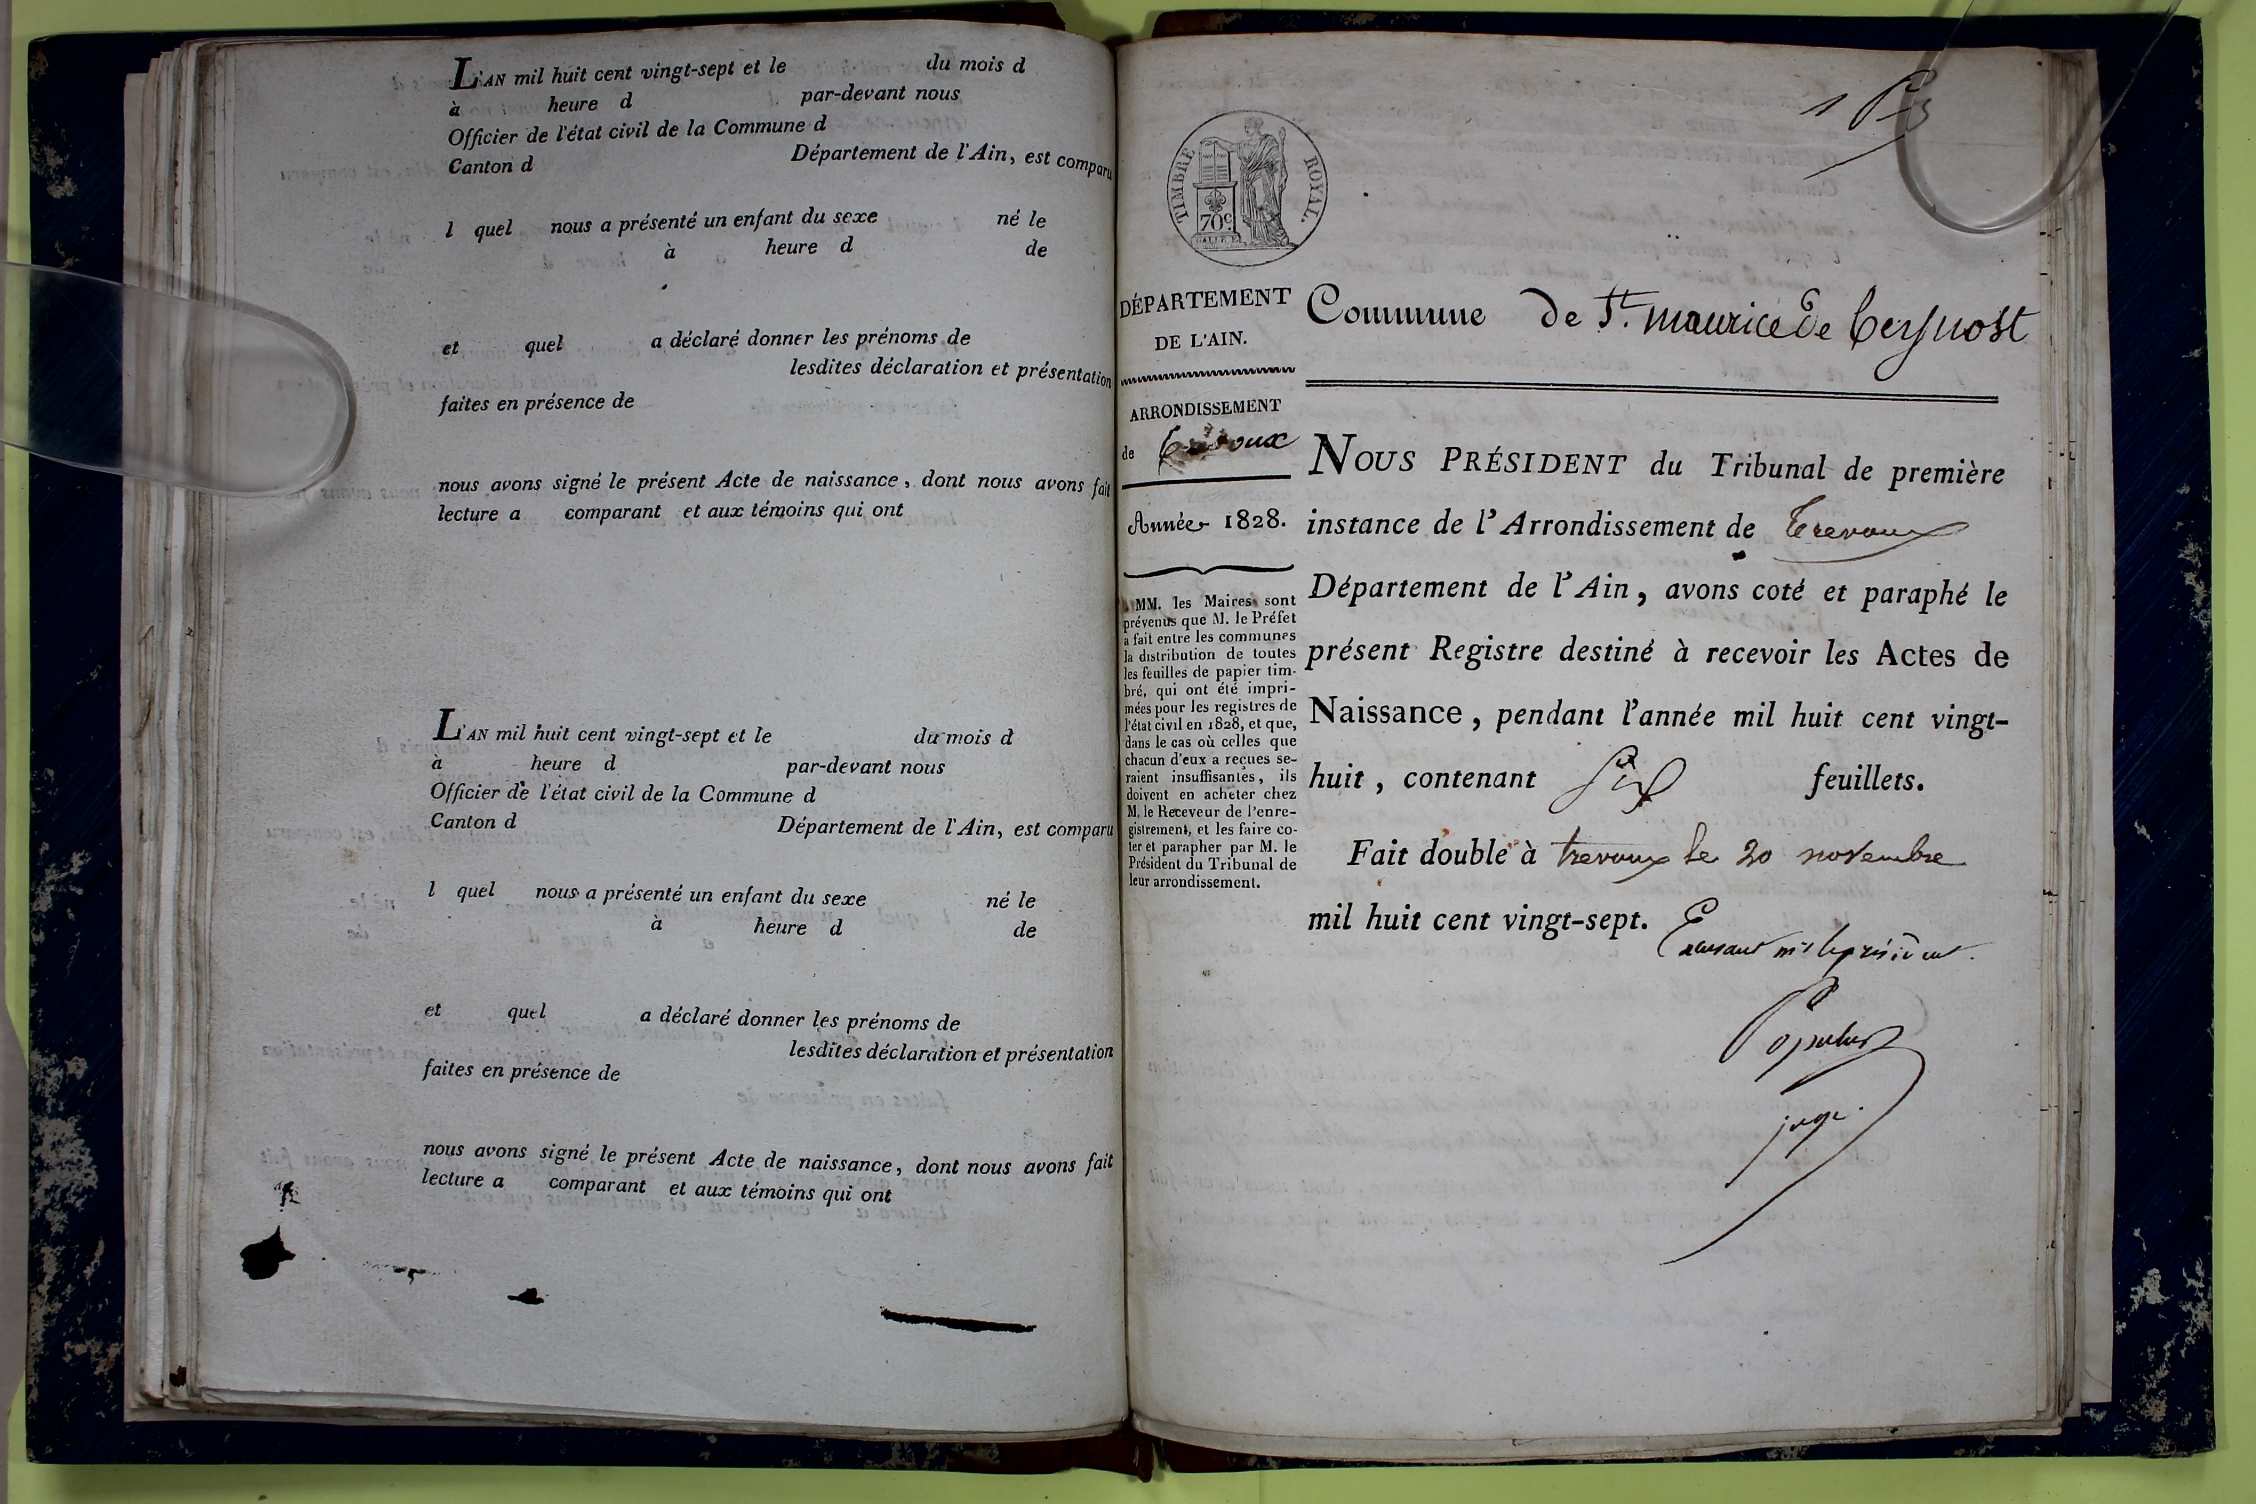 L'AN mil huit cent vingt-sept et le du mois d
à heure d par-devant nous
Officier de l'état civil de la Commune d
Canton d Département de l'Ain, est comparu
l quel nous a présenté un enfant du sexe né le
à heure d de
et quel a déclaré donner les prénoms de
lesdites déclaration et présentation
faites en présence de
nous avons signé le présent Acte de naissance, dont nous avons fait
lecture a comparant et aux témoins qui ont
L'AN mil huit cent vingt-sept et le du mois d
à heure d par-devant nous
Officier de l'état civil de la Commune d
Canton d Département de l'Ain, est comparu
l quel nous a présenté un enfant du sexe né le
à heure d de
et quel a déclaré donner les prénoms de
lesdites déclaration et présentation
faites en présence de
nous avons signé le présent Acte de naissance, dont nous avons fait
lecture a comparant et aux témoins qui ont
1
TIMBRE ROYAL.
70c.
DÉPARTEMENT
DE L'AIN.
ARRONDISSEMENT
de Trévoux
Année 1828.
MM. les Maires sont
prévenus que M. le Préfet
a fait entre les communes
la distribution de toutes
les feuilles de papier tim-
bré, qui ont été impri-
mées pour les registres de
l'état civil en 1828, et que,
dans le cas où celles que
chacun d'eux a reçues se-
raient insuffisantes, ils
doivent en acheter chez
M. le Receveur de l'enre-
gistrement, et les faire co-
ter et parapher par M. le
Président du Tribunal de
leur arrondissement.
Commune de St. maurice de beynost
NOUS PRÉSIDENT du Tribunal de première
instance de l'Arrondissement de Trevoux
Département de l'Ain, avons coté et paraphé le
présent Registre destiné à recevoir les Actes de
Naissance, pendant l'année mil huit cent vingt-
huit, contenant six feuillets.
Fait double à trevoux le 20 novembre
mil huit cent vingt-sept.
mr le président.
juge.